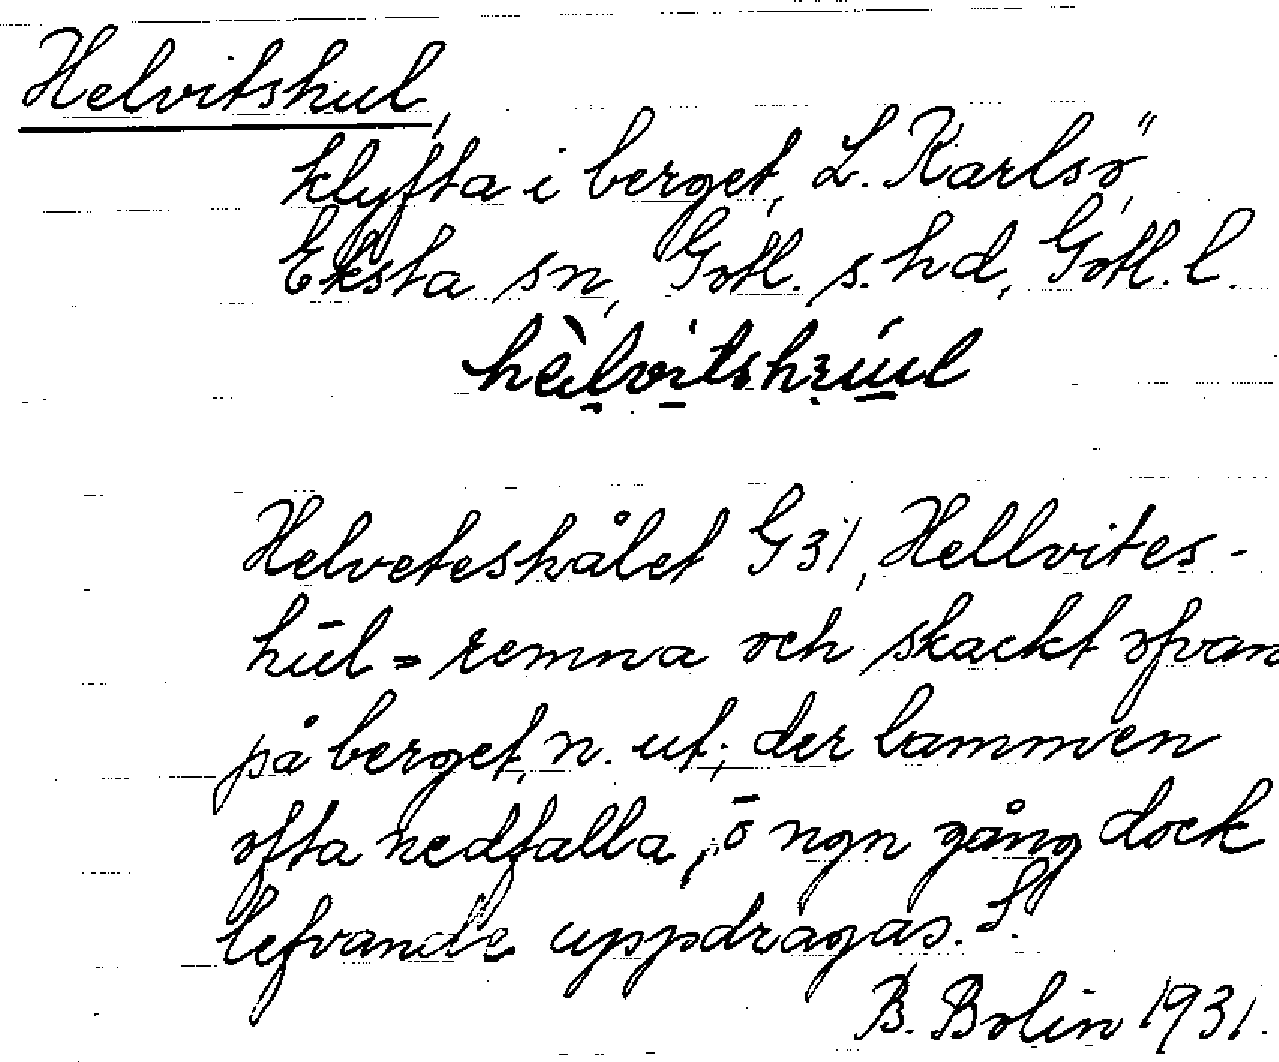 Helvitshul,
klyfta i berget, L. Karlsö,
Eksta sn, Gotl. s. hd, Gotl. l.
Helveteshålet G31, Hellvites-
hūl = remna och skackt ofvan
på berget, n. ut; der lammen
ofta nedfalla, ō ngn gång dock
lefvande uppdragas. S.
B. Bolin 1931.